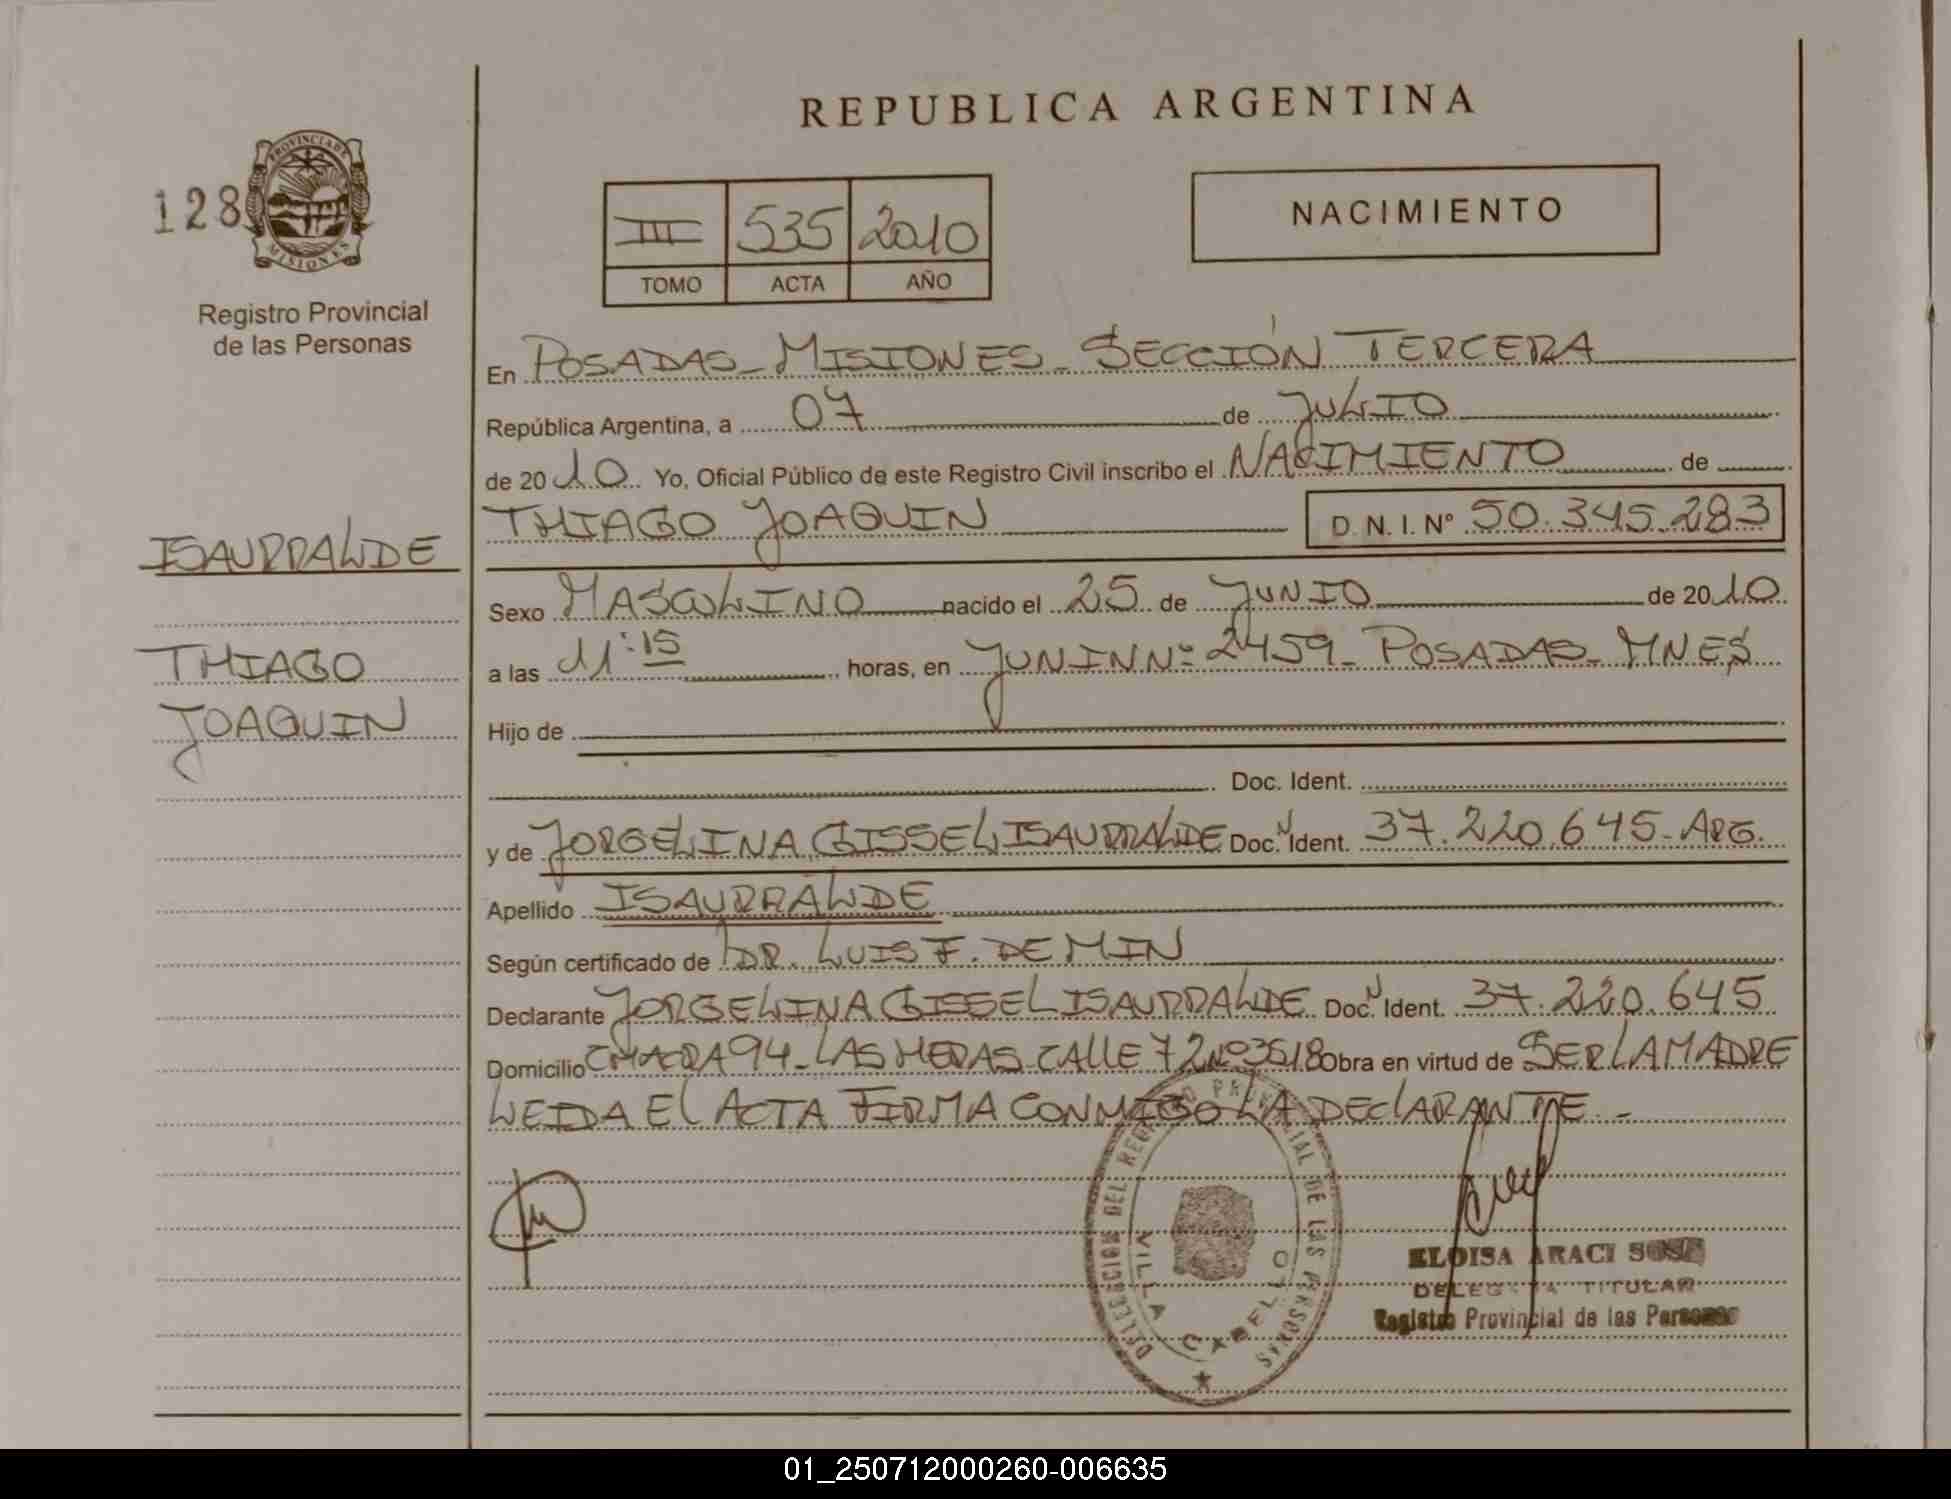 REPUBLICA ARGENTINA
128
PROVINCIA DE
MISIONES
Registro Provincial
de las Personas
III 535 2010
TOMO ACTA AÑO
NACIMIENTO
En POSADAS - MISIONES - SECCIÓN TERCERA
República Argentina, a 07 de JULIO
de 2010 Yo, Oficial Público de este Registro Civil inscribo el NACIMIENTO de
THIAGO JOAQUIN D.N.I. Nº 50.345.283
ISAURRALDE
THIAGO
JOAQUIN
Sexo MASCULINO nacido el 25 de JUNIO de 2010
a las 11:15 horas, en JUNIN Nº 2459 - POSADAS - MNES
Hijo de
Doc. Ident.
y de JORGELINA GISSEL ISAURRALDE Doc. N Ident. 37.220.645 - ARG.
Apellido ISAURRALDE
Según certificado de DR. LUIS F. DE MIN
Declarante JORGELINA GISSEL ISAURRALDE Doc. N Ident. 37.220.645
Domicilio CHACRA 94 - LAS HERAS CALLE 72 Nº 3618 Obra en virtud de SER LA MADRE
LEIDA EL ACTA FIRMA CONMIGO LA DECLARANTE -
DELEGACION DEL REGISTRO PROVINCIAL DE LAS PERSONAS
VILLA CABELLO
ELOISA ARACI SOSA
DELEGADA TITULAR
Registro Provincial de las Personas
01_250712000260-006635